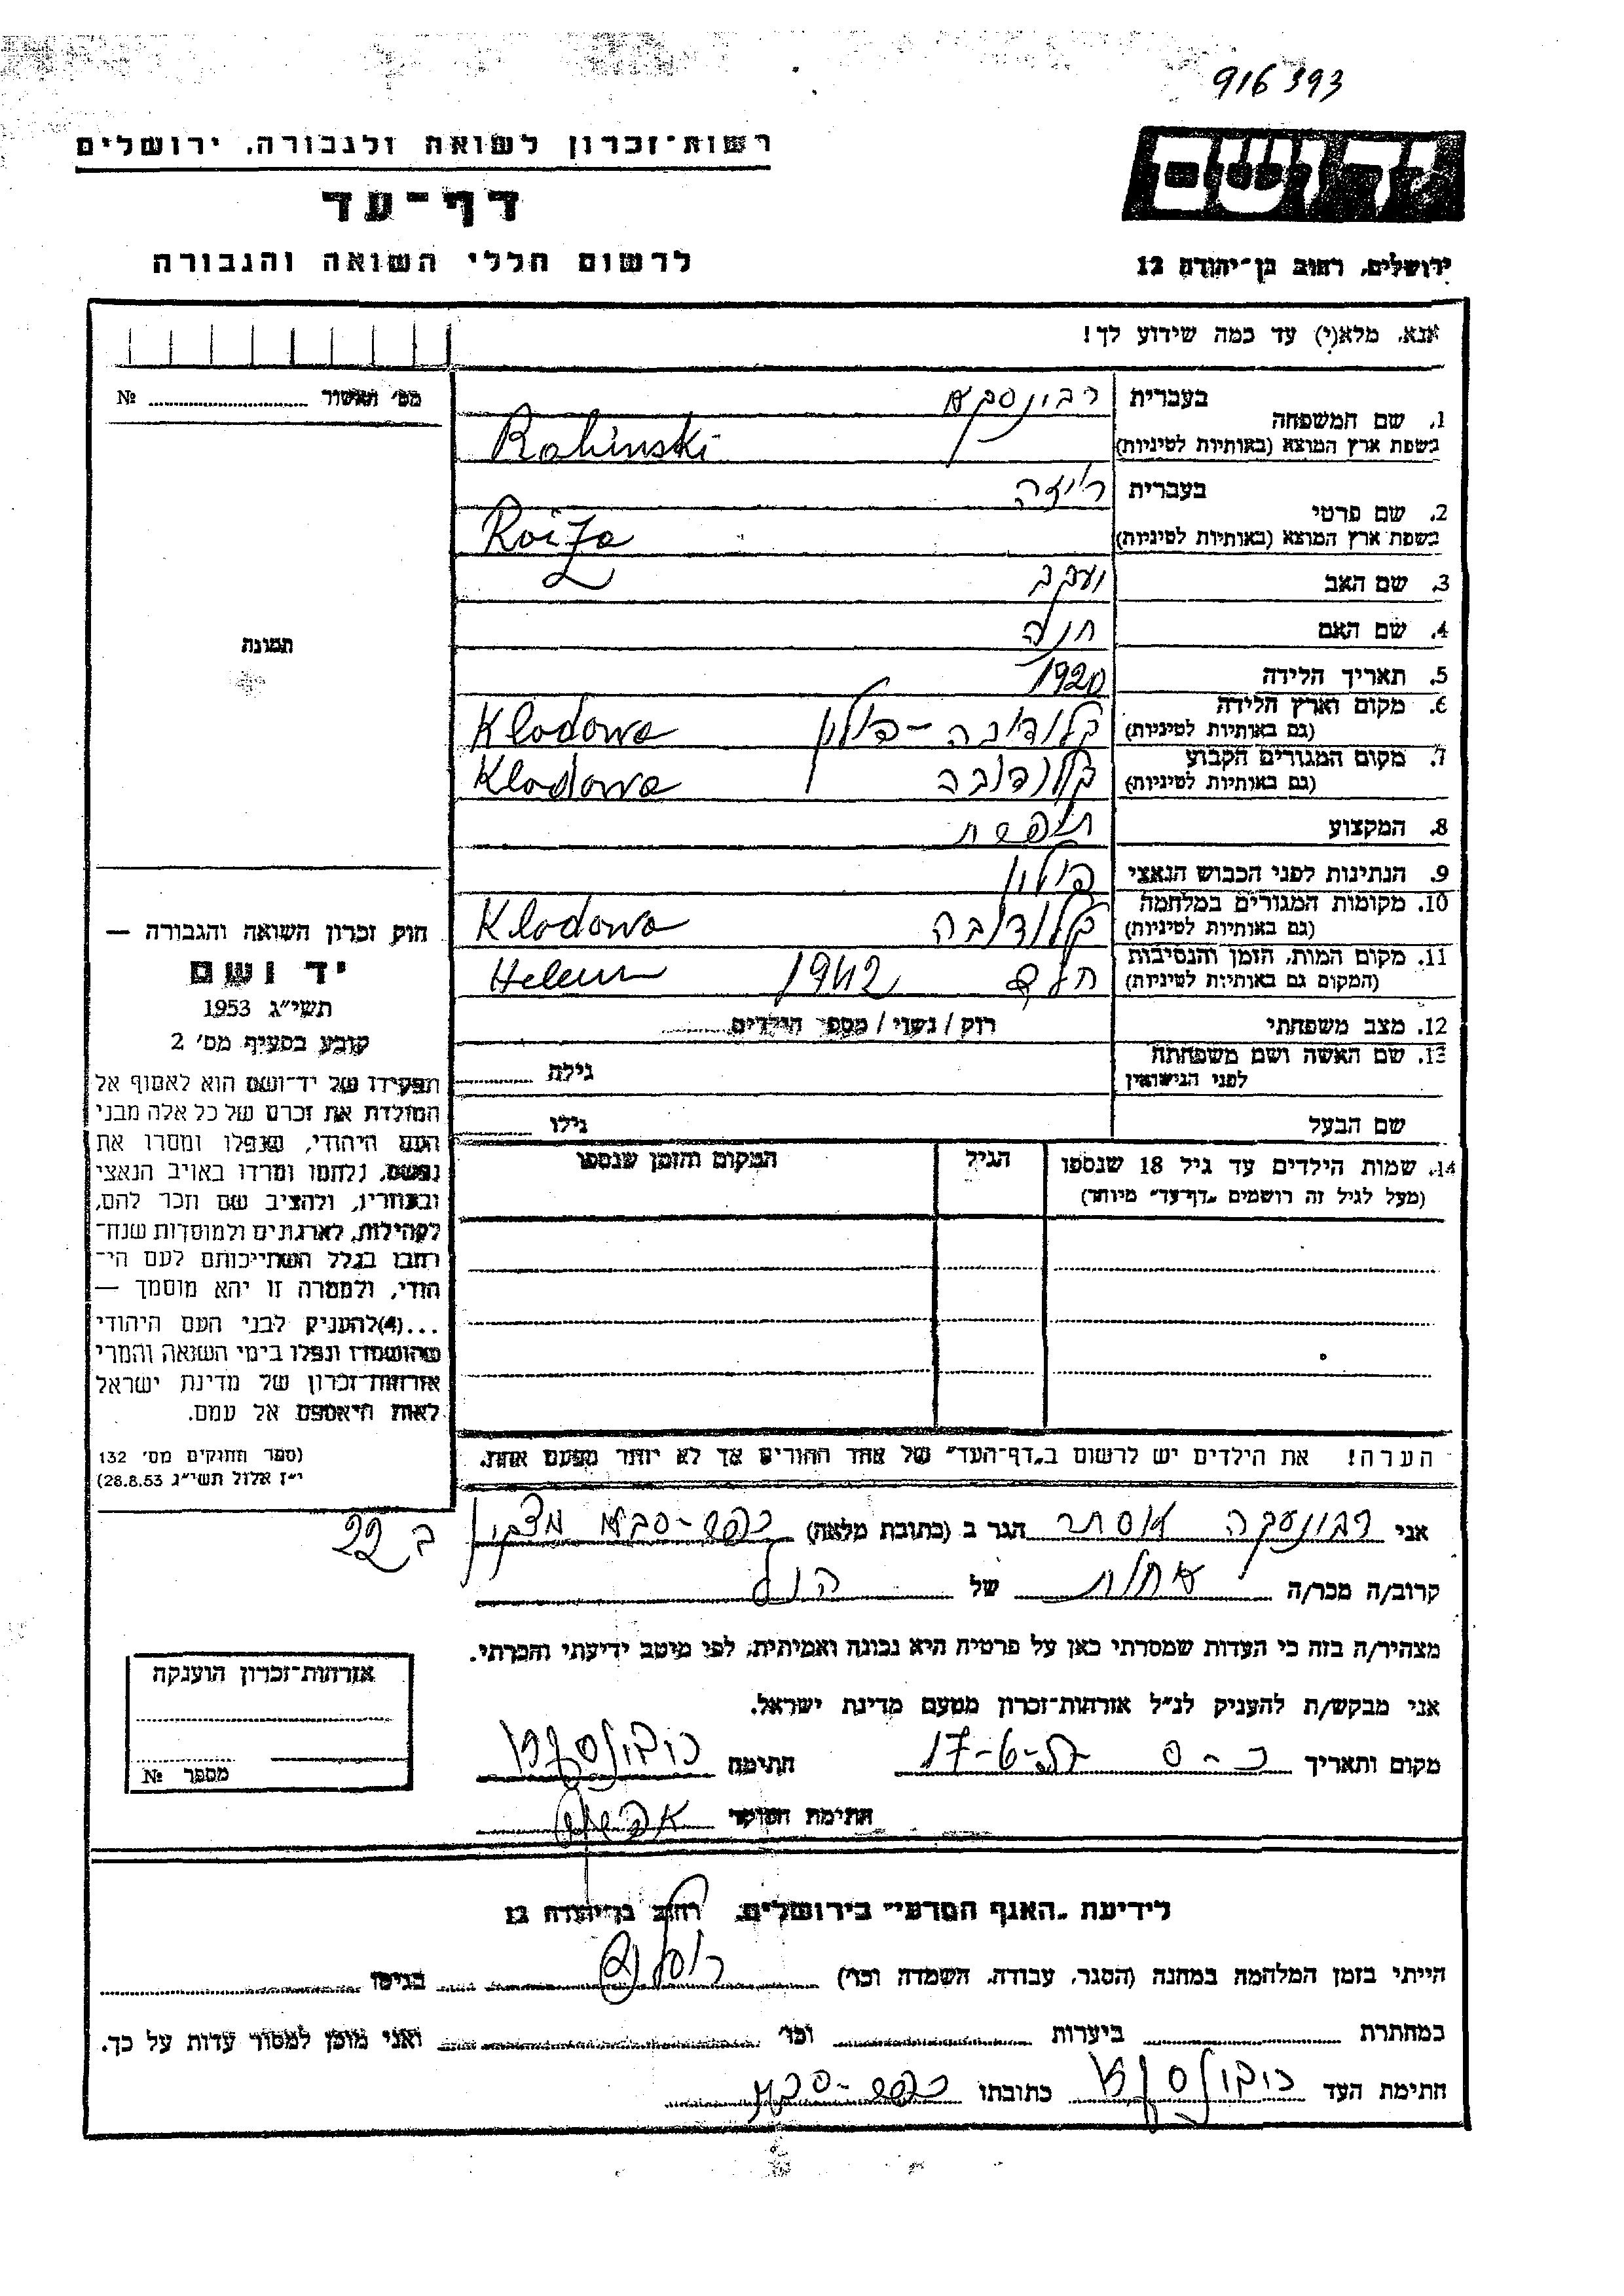 916 393
רשות־זכרון לשואה ולגבורה, ירושלים
דף־עד
לרשום חללי השואה והגבורה
יד ושם
ירושלים, רחוב בן־יהודה 12
אנא, מלא(י) עד כמה שידוע לך!
מס׳ תאשור № 
1. שם המשפחה
בעברית
בשפת ארץ המוצא (באותיות לטיניות) Rabinski
2. שם פרטי
בעברית רויזה
בשפת ארץ המוצא (באותיות לטיניות) Roiza
3. שם האב יעקב
4. שם האם חנה
5. תאריך הלידה 1920
6. מקום וארץ הלידה
(גם באותיות לטיניות) קלודובה - פולין Klodowa
7. מקום המגורים הקבוע
(גם באותיות לטיניות) קלודובה Klodowa
8. המקצוע תופרת
9. הנתינות לפני הכבוש הנאצי פולין
10. מקומות המגורים במלחמה
(גם באותיות לטיניות) קלודובה Klodowa
11. מקום המות, הזמן והנסיבות
(המקום גם באותיות לטיניות) חלם 1942 Helem
12. מצב משפחתי רוק / נשוי / מספר הילדים
13. שם האשה ושם משפחתה
לפני הנישואין גילה
שם הבעל גילו
14. שמות הילדים עד גיל 18 שנספו הגיל המקום והזמן שנספו
(מעל לגיל זה רושמים „דף־עד״ מיוחד)
הערה! את הילדים יש לרשום ב„דף־העד״ של אחד ההורים אך לא יותר מפעם אחת.
תמונה
חוק זכרון השואה והגבורה —
יד ושם
תשי״ג 1953
קובע בסעיף מס׳ 2
תפקידו של יד־ושם הוא לאסוף אל
המולדת את זכרם של כל אלה מבני
העם היהודי, שנפלו ומסרו את
נפשם, נלחמו ומרדו באויב הנאצי
ובעוזריו, ולהציב שם וזכר להם,
לקהילות, לארגונים ולמוסדות שנח־
רבו בגלל השתייכותם לעם הי־
הודי, ולמטרה זו יהא מוסמך —
...(4)להעניק לבני העם היהודי
שהושמדו ונפלו בימי השואה והמרי
אזרחות־זכרון של מדינת ישראל
לאות היאספם אל עמם.
(ספר החוקים מס׳ 132
י״ז אלול תשי״ג 28.8.53)
אני אסתר הגר ב (כתובת מלאה) כפר-סבא ב 22
קרוב/ה מכר/ה אחות של הנ״ל
מצהיר/ה בזה כי העדות שמסרתי כאן על פרטיה היא נכונה ואמיתית, לפי מיטב ידיעתי והכרתי.
אני מבקש/ת להעניק לנ״ל אזרחות־זכרון מטעם מדינת ישראל.
מקום ותאריך כ-ס 17-6-57 חתימה
חתימת הפוקד
אזרחות־זכרון הוענקה
מספר №
לידיעת „האגף המדעי״ בירושלים, רחוב בן־יהודה 12
הייתי בזמן המלחמה במחנה (הסגר, עבודה, השמדה וכו׳) בגיטו
במחתרת ביערות וכו׳ ואני מוכן למסור עדות על כך.
חתימת העד כתובתו כפר-סבא